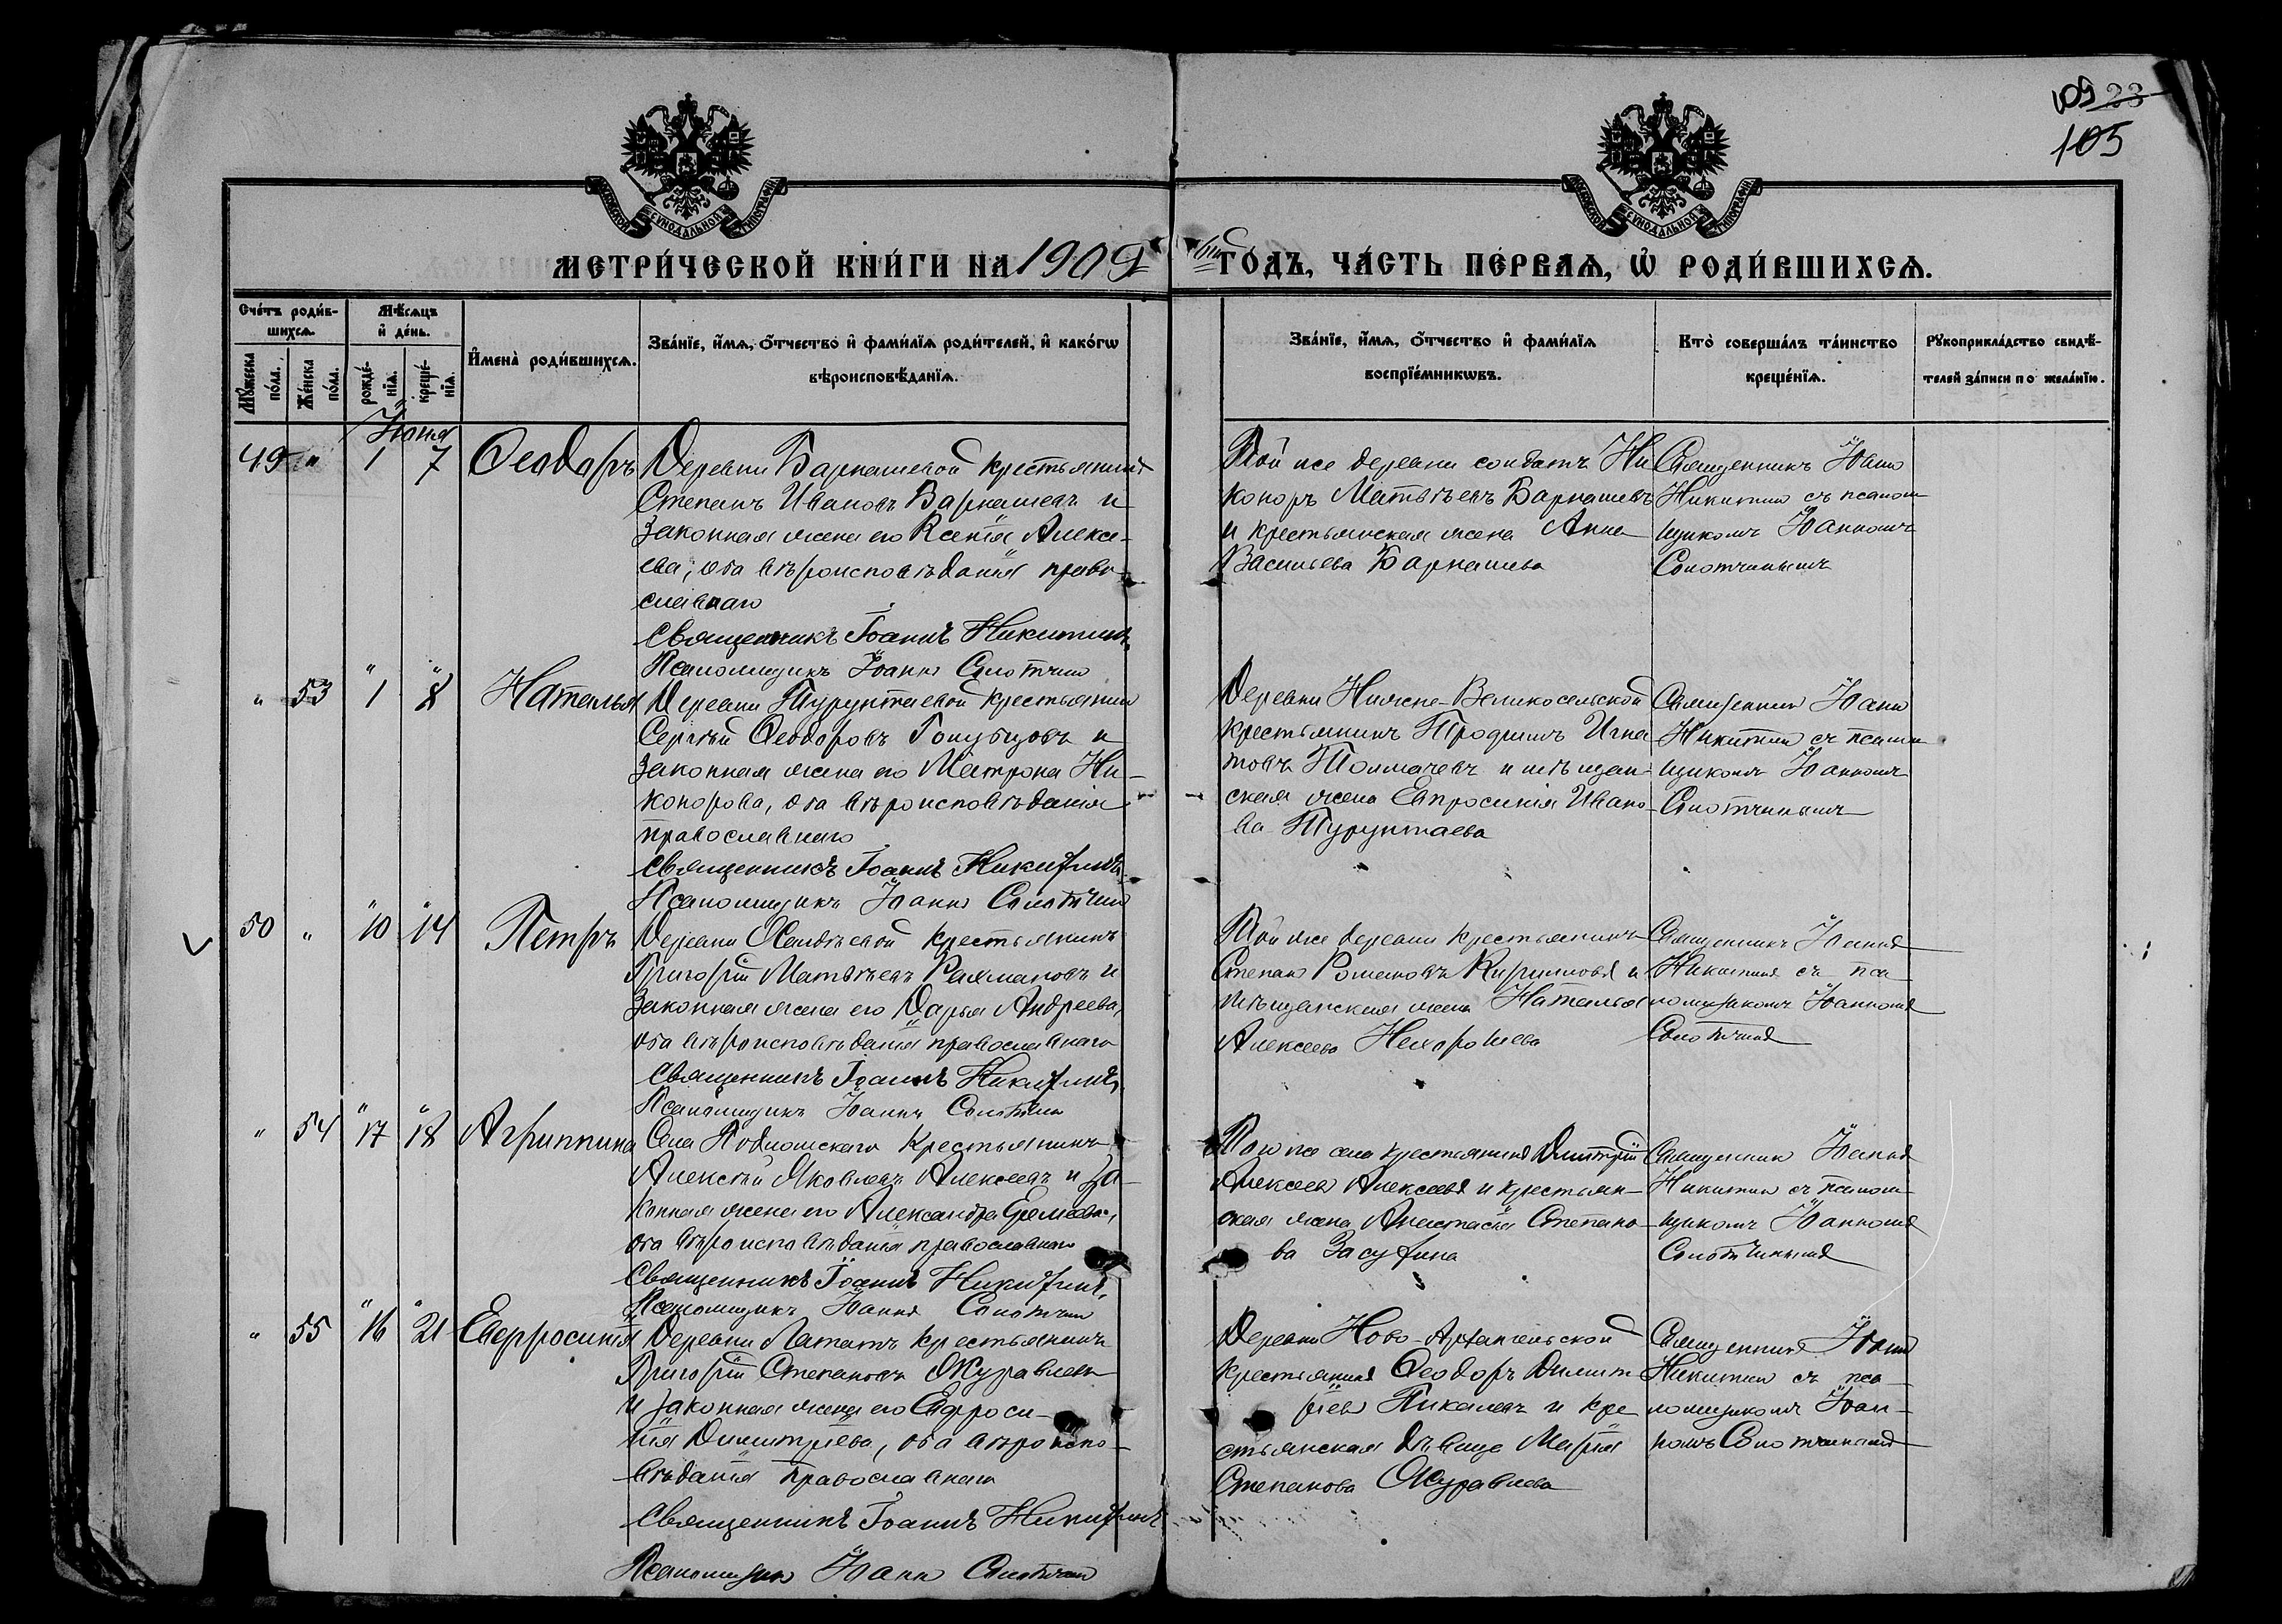 109 23
105
МОСКОВСКОЙ СУНОДАЛЬНОЙ ТИПОГРАФІИ
МОСКОВСКОЙ СУНОДАЛЬНОЙ ТИПОГРАФІИ
МЕТРИ́ЧЕСКОЙ КНИ́ГИ НА 1909 ГОДЪ, ЧА́СТЬ ПЕ́РВАѦ, Ѡ҆ РОДИ́ВШИХСѦ.
Сче́тъ роди́в-
шихсѧ.
Мꙋ́жеска по́ла.
Же́нска по́ла.
Мѣ́сѧцъ
и҆ де́нь.
рожде́-
нїѧ.
креще́-
нїѧ.
И҆мена̀ роди́вшихсѧ.
Зва́нїе, и҆́мѧ, ѻ҆́тчество и҆ фами́лїѧ роди́телей, и҆ како́гѡ
вѣроисповѣ́данїѧ.
Зва́нїе, и҆́мѧ, ѻ҆́тчество и҆ фами́лїѧ
воспрїе́мникѡвъ.
Кто̀ соверша́лъ та́инство
креще́нїѧ.
Рꙋкоприкла́дство свидѣ́-
телей за́писи по жела́нїю.
Іюня
49 " 1 7 Ѳеодоръ
Деревни Барнашевой крестьянинъ
Степанъ Ивановъ Барнашевъ и
законная жена его Ксенія Алексе-
ева, оба вѣроисповѣданія право-
славнаго
Священникъ Іоаннъ Никитинъ
Псаломщикъ Іоаннъ
Той же деревни солдатъ Ни
коноръ Матвѣевъ Барнашевъ
и крестьянская жена Анна
Васильева Барнашева
Священникъ Іоаннъ
Никитинъ съ псалом
щикомъ Іоанномъ
" 53 1 8 Наталья
Деревни Турунтаевой крестьянинъ
Сергѣй Ѳеодоровъ Голубцовъ и
законная жена его Матрона Ни-
конорова, оба вѣроисповѣданія
православнаго
Священникъ Іоаннъ Никитинъ
Псаломщикъ Іоаннъ
Деревни Нижне-Великосельской
крестьянинъ Трофимъ Игна
товъ Толмачевъ и мѣщан-
ская жена Евпросинія Ивано-
ва Турунтаева
Священникъ Іоаннъ
Никитинъ съ псалом
щикомъ Іоанномъ
50 " 10 14 Петръ
Деревни крестьянинъ
Григорій Матвѣевъ и
законная жена его Дарья Андреева,
оба вѣроисповѣданія православнаго
Священникъ Іоаннъ Никитинъ
Псаломщикъ Іоаннъ
Той же деревни крестьянинъ
Степанъ Романовъ Кирилловъ и
мѣщанская жена Наталья
Алексеева Нехорошева
Священникъ Іоаннъ
Никитинъ съ пса-
ломщикомъ Іоанномъ
" 54 17 18 Агриппина
Села Подломскаго крестьянинъ
Алексѣй Яковлевъ Алексеевъ и за-
конная жена его Александра
оба вѣроисповѣданія православнаго
Священникъ Іоаннъ Никитинъ
Псаломщикъ Іоаннъ
Того же села крестьянинъ Димитрій
Алексеевъ Алексеевъ и крестьян-
ская жена Анастасія Степано-
ва Засухина
Священникъ Іоаннъ
Никитинъ съ псалом-
щикомъ Іоанномъ
" 55 16 21 Евфросинія
Деревни Лататъ крестьянинъ
Григорій Степановъ Журавлевъ
и законная жена его Евфроси-
нія Димитріева, оба вѣроиспо-
вѣданія православнаго
Священникъ Іоаннъ Никитинъ
Псаломщикъ Іоаннъ
Деревни Ново-Архангельской
крестьянинъ Ѳеодоръ Димит
ріевъ Пикалевъ и кре
стьянская дѣвица Марія
Степанова Журавлева
Священникъ Іоаннъ
Никитинъ съ пса-
ломщикомъ Іоан-
номъ